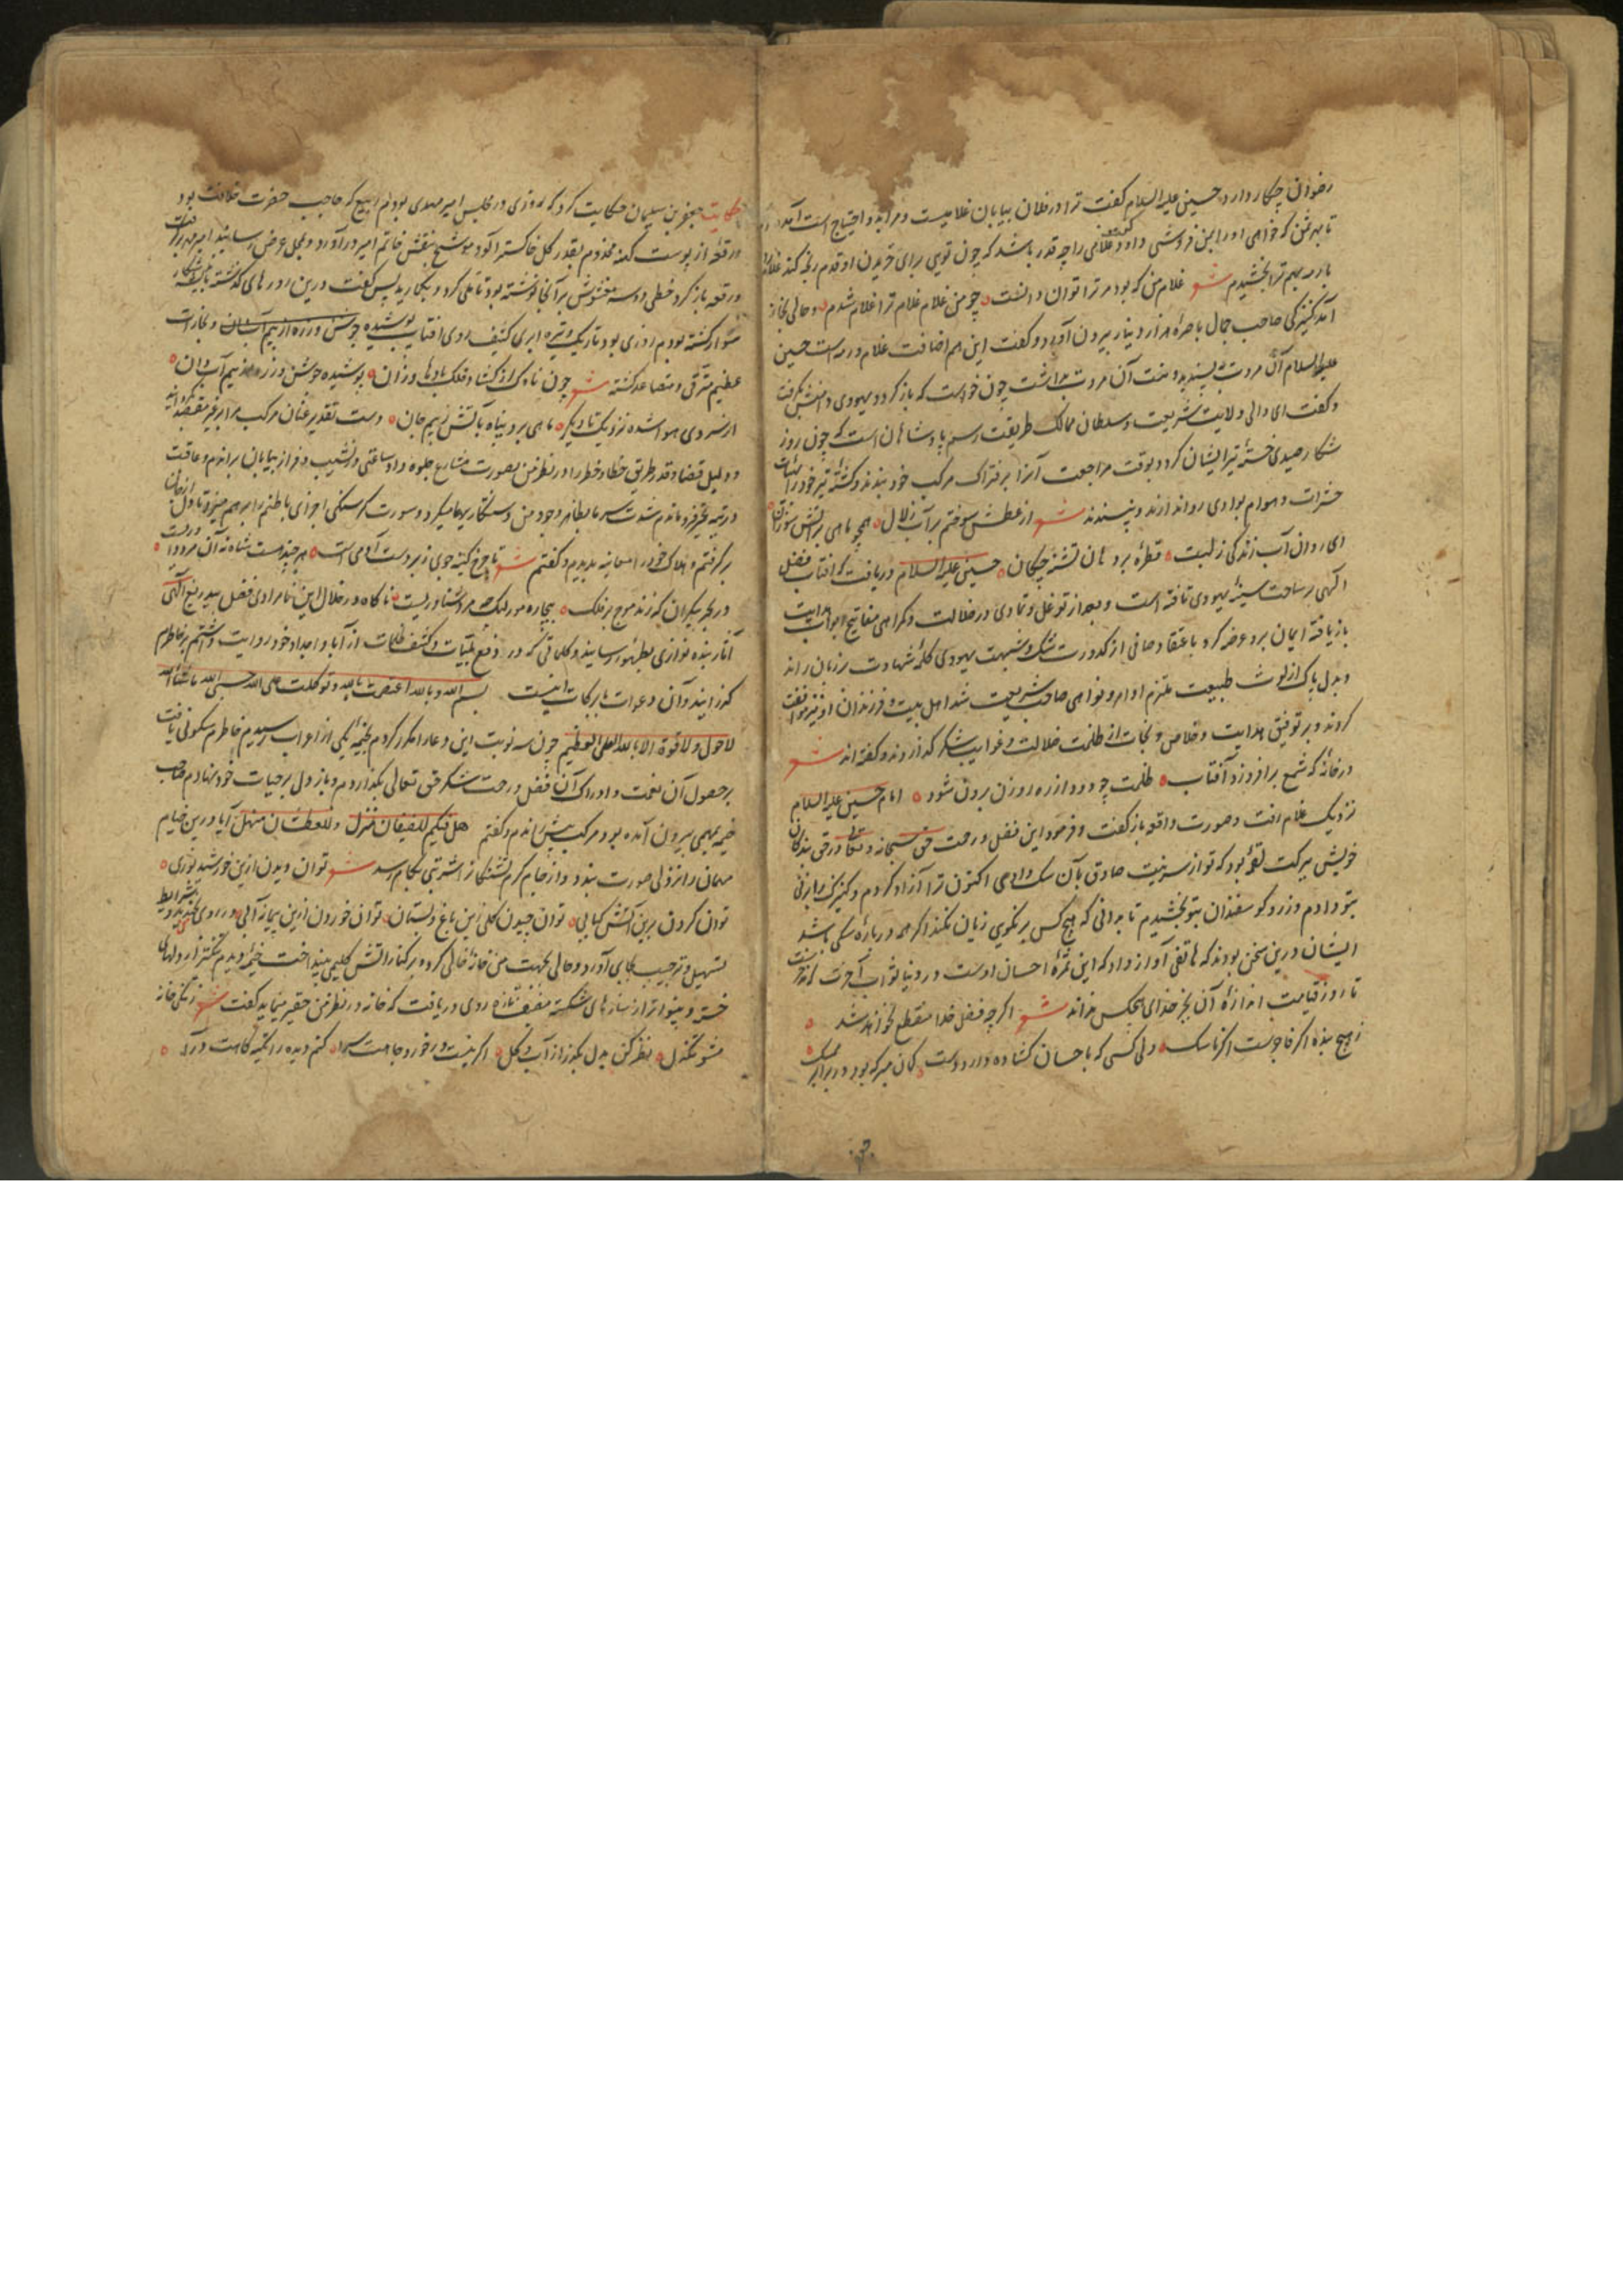 رضوان چکار دارد حسین علیه السلام گفت ترا در فلان بیابان غلامیست و مرا بدو احتیاج است
تا بهر ثمن که خواهی او را بمن فروشی داود گفت غلامی را چه قدر باشد که چون تویی برای خریدن او قدم رنجه کند
با رمه بهم ترا بخشیدم شعر غلام من که بود مر ترا توان دانست چو من غلام غلام ترا غلام شدم و حالی بخانه
آمد کنیزکی صاحب جمال با صره هزار دینار بیرون آورد و گفت این هم اضافت غلام و رمه است حسین
علیه السلام آن مروت پسندید و منت آن مروت برداشت چون خواست که باز گردد یهودی دامنش بگرفت
و گفت ای والی ولایت شریعت و سلطان ممالک طریقت رسم پادشاهان است که چون روز
شکار صیدی خسته تیر ایشان گردد بوقت مراجعت آنرا بر فتراک مرکب خود بندند و کشته تیر خود را
حشرات و هوام بوادی روا ندارند و نپسندند شعر از عطش سوختم بر آب زلال همچو ماهی بر آتش سوزان
ای روان آب زندگی ز لبت قطره بر دهان تشنه چکان حسین علیه السلام دریافت که آفتاب فضل
الهی بر ساحت سینه یهودی تافته است و بعد از توغل و تمادی در ضلالت و گمراهی مفاتیح ابواب هدایت
بازیافته ایمان برو عرضه کرد با عتقاد صافی از کدورت شک و شبهت یهودی کلمه شهادت بر زبان راند
و بدل پاک از لوث طبیعت ملتزم اوامر و نواهی صاحب شریعت شد اهل بیت و فرزندان او نیز موافقت
کردند و بر توفیق هدایت و خلاص و نجات از ظلمت ضلالت و غوایت شکر گذاردند و گفته اند شعر
در خانه که شمع برافروزد آفتاب ظلمت چو دود از ره روزن برون شود امام حسین علیه السلام
نزدیک غلام رفت و صورت واقعه بازگفت و فرمود این فضل و رحمت حق سبحانه و تعالی در حق بندگان
خویش ببرکت لقمه بود که تو از سر نیت صادق بآن سگ دادی اکنون ترا آزاد کردم و کنیزک را بزنی
بتو دادم و زر و گوسفندان بتو بخشیدم تا بدانی که هیچ کس بر نکویی زیان نکند اگر همه در باره سگی باشد
ایشان درین سخن بودند که هاتفی آواز داد که این ثمره احسان اوست در دنیا ثواب آخرت
تا روز قیامت اندازه آن بجز خدای هیچکس نداند شعر اگرچه فضل خدا منقطع نخواهد شد
ز هیچ بنده اگر فاجرست اگر ناسک ولی کسی که باحسان گشاده دارد دست گمان مبر که بود در برابر ممسک
حکایت جعفر بن سلیمان حکایت کرد که روزی در مجلس امیر مهدی بودم ربیع که حاجب حضرت خلافت بود
رقعه از پوست کهنه بقدر گل خاکستر آلود موشح بنقش خاتم امیر درآورد و بمحل عرض رسانید امیر
رقعه باز کرد خطی بر آنجا نوشته بود تأملی کرد و بخندید پس گفت درین روزهای گذشته
سوار گشته بودم روزی بود تاریک و تیره ابری کثیف روی آفتاب پوشیده
عظیم مترقی و متصاعد گشته شعر چون ناوک از گشاد فلک بادها وزان پوشیده جوشن و زره از بیم آب روان
از سردی هوا شده نزدیک تا دیگر ماهی برد پناه بآتش ز بیم جان دست تقدیر عنان مرکب مرا
و دلیل قضا و قدر طریق خطا و خطر را در نظر من بصورت شارع جلوه داد ساعتی در نشیب و فراز بیابان براندم و عاقبت
در تیه تحیر فرو ماندم شدت سرما بظاهر وجود من دستکاریها میکرد و سورت گرسنگی اجزای باطنم را برهم میزد تا دل از جان
برگرفتم و هلاک خود را معاینه بدیدم و گفتم شعر
در بحر بیکران که زند موج بر فلک بیچاره مور لنگ چه مرد شناوریست ناگاه در خلال این نامرادی فضل بیدریغ الهی
آثار بنده نوازی بظهور رسانید و کلماتی که در دفع بلیات و کشف ظلمات از آبا و اجداد خود روایت داشتم بر خاطرم
گذرانید و آن دعوات بابرکات اینست بسم الله وبالله اعتصمت بالله وتوکلت علی الله حسبی الله ما شاء الله
لا حول ولا قوة الا بالله العلی العظیم چون سه نوبت این دعا را مکرر کردم بخیمه یکی از اعراب رسیدم خاطرم سکونی یافت
بر حصول آن نعمت و ادراک آن فضل و رحمت شکر حق تعالی بگذاردم و باز دل بر حیات خود نهادم صاحب
خیمه بمهمی بیرون آمده بود مرکب پیش راندم و گفتم هل فیکم للضیفان منزل وللعطشان منهل آیا درین خیام
مهمان را نزولی صورت بندد و از جام کرم تشنگان را شربتی بکام رسد شعر توان دیدن ازین خورشید نوری
توان کردن برین آتش کبابی توان چیدن گلی زین باغ و بستان توان خوردن ازین پیمانه آبی
تسهیل و ترحیب بجای آورد و حالی بجهت من خانه خالی کرده بر کنار آتش گلیمی بینداخت خیمه دیدم تنگتر از دلهای
خسته و بینواتر از سازهای شکسته مضیف تازه روی دریافت که خانه در نظر من حقیر مینماید گفت شعر ز تنگی خانه
مشو تنگدل نظر کن بدل بگذر از آب و گل اگر نیست در خورد جاهت سرا کنم دیده را تکیه گاهت درآ